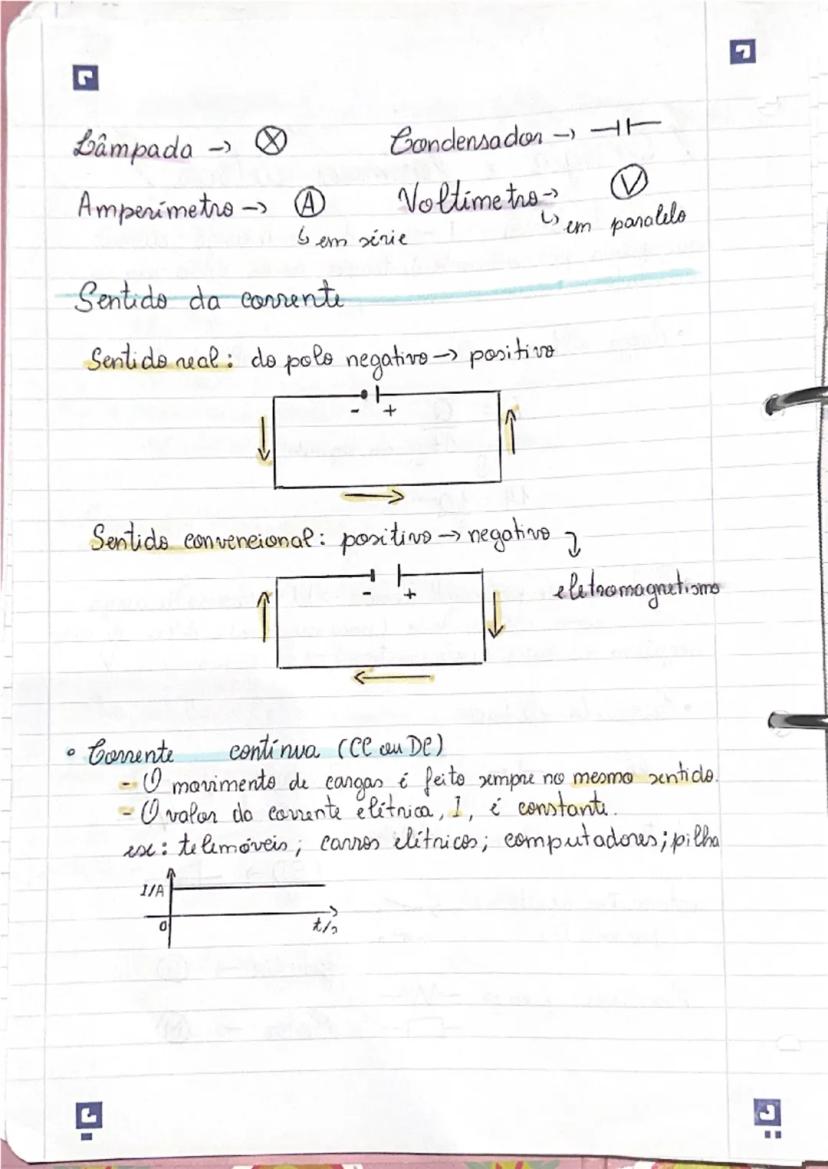 Lâmpada → Ⓧ Condensador →
Amperímetro → Ⓐ Voltímetro → Ⓥ
↳ em série ↳ em paralelo
Sentido da corrente
Sentido real: do polo negativo → positivo
- +
Sentido convencional: positivo → negativo
- + eletromagnetismo
• Corrente contínua (CC ou DC)
- O movimento de cargas é feito sempre no mesmo sentido.
- O valor da corrente elétrica, I, é constante.
ex: telemóveis; carros elétricos; computadores; pilha
I/A
0 t/s